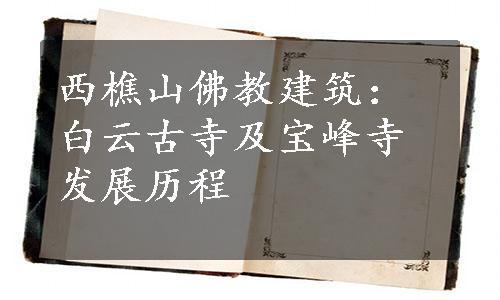 西樵山佛教建筑：
白云古寺及宝峰寺
发展历程